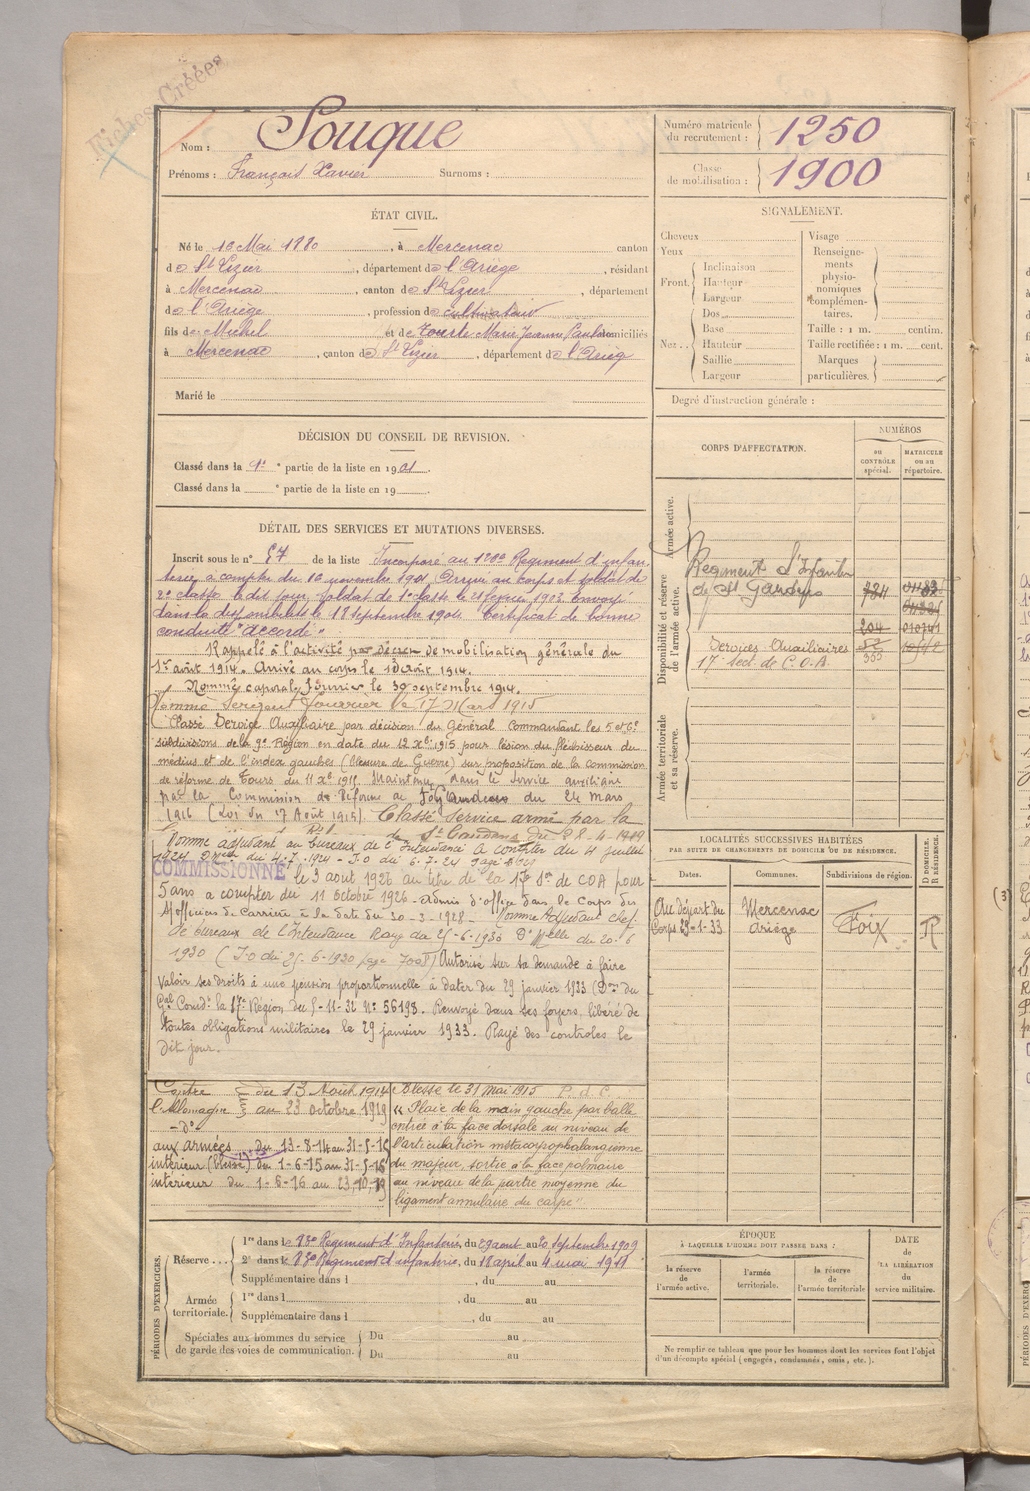 Fiches Créées
Nom : Souque
Prénoms : François Xavier Surnoms :
Numéro matricule
du recrutement : 1250
Classe
de mobilisation : 1900
ÉTAT CIVIL.
Né le 16 Mai 1880, à Mercenac canton
de St Lizier, département de l'Ariège, résidant
à Mercenac, canton de St Lizier, département
de l'Ariège, profession de cultivateur
fils de Michel et de Tourte Marie Jeanne Pauline domiciliés
à Mercenac, canton de St Lizier, département de l'Arièg
Marié le
SIGNALEMENT.
Cheveux
Yeux
Front. Inclinaison
Hauteur
Largeur
Nez.. Dos
Base
Hauteur
Saillie
Largeur
Visage
Renseigne-
ments
physio-
nomiques
complémen-
taires.
Taille : 1 m. centim.
Taille rectifiée : 1 m. cent.
Marques
particulières.
Degré d'instruction générale :
DÉCISION DU CONSEIL DE REVISION.
Classé dans la 1re partie de la liste en 1901.
Classé dans la partie de la liste en 19
DÉTAIL DES SERVICES ET MUTATIONS DIVERSES.
Inscrit sous le n° 57 de la liste Incorporé au 120e Régiment d'infan
terie à compter du 16 novembre 1901. Arrivé au corps et soldat de
2e classe le dit jour. Soldat de 1e classe le 21 février 1903. Envoyé
dans la disponibilité le 18 septembre 1904. Certificat de bonne
conduite "accordé"
Rappelé à l'activité par décret de mobilisation générale du
1er août 1914. Arrivé au corps le 13 août 1914.
Nommé caporal fourrier le 30 septembre 1914.
Nommé Sergent fourrier le 17 Mars 1915
Classé Service Auxiliaire par décision du Général Commandant les 5 et 6e
subdivisions de la 9e Région en date du 12 Xbre 1915 pour lésion du fléchisseur du
médius et de l'index gauches (blessure de Guerre) sur proposition de la commission
de réforme de Tours du 11 Xe 1915. Maintenu dans le service auxiliaire
par la Commission de Réforme de St Gaudens du 24 mars
1916 (Loi du 17 Août 1915). Classé service armé par la
de St Gaudens du 28-4-1919
Nommé adjudant au bureaux de l'Intendance à compter du 4 juillet
1924. du 4.7.1924 - J.O du 6.7.24 page
COMMISSIONNÉ le 3 août 1926 au titre de la 17e Son de COA pour
5 ans a compter du 11 octobre 1926 - Admis d'office dans le Corps des
S/officiers de Carrière à la date du 30-3-1928 - Nommé Adjudant chef
de bureaux de l'Intendance Rang du 25-6-1930 Don Mlle du 20.6
1930 (J.O du 25-6-1930 page 7008) Autorisé sur sa demande à faire
valoir ses droits à une pension proportionnelle à dater du 29 janvier 1933 (Don du
Gal Comdt la 17e Région du 5-11-32 N° 56198. Renvoyé dans ses foyers, libéré de
toutes obligations militaires le 29 janvier 1933. Rayé des controles le
dit jour.
CORPS D'AFFECTATION.
NUMÉROS
au
CONTRÔLE
spécial.
MATRICULE
ou au
répertoire.
Armée active.
Disponibilité et réserve
de l'armée active.
Régiment d'Infanterie
de St Gaudens
784
204 010741
Services Auxiliaires 52
17e sect. de C.O.A.
Armée territoriale
et sa réserve.
LOCALITÉS SUCCESSIVES HABITÉES
PAR SUITE DE CHANGEMENTS DE DOMICILE OU DE RÉSIDENCE.
Dates. Communes. Subdivisions de région. D DOMICILE. R RÉSIDENCE.
Au départ du Mercenac Foix R
Corps 29-1-33 Ariège
Contre du 13 Août 1914
l'Allemagne au 23 octobre 1919
- do
aux armées du 13-8-14 au 31-5-15
intérieur (blessé) du 1-6-15 au 31-5-16
intérieur du 1-6-16 au 23-10-19
Blessé le 31 mai 1915 P. d. C.
"Plaie de la main gauche par balle
entrée à la face dorsale au niveau de
l'articulation métacarpophalangienne
du majeur, sortie à la face palmaire
au niveau de la partie moyenne du
ligament annulaire du carpe"
PÉRIODES D'EXERCICES.
Réserve... 1re dans le 18e Régiment d'Infanterie, du 29 aout au 20 Septembre 1909
2e dans le 18e Régiment d'infanterie, du 18 april au 4 mai 1911
Supplémentaire dans l , du au
Armée
territoriale. 1re dans l , du au
Supplémentaire dans l , du au
Spéciales aux hommes du service
de garde des voies de communication. Du au
Du au
ÉPOQUE
À LAQUELLE L'HOMME DOIT PASSER DANS :
la réserve
de
l'armée active.
l'armée
territoriale.
la réserve
de
l'armée territoriale
DATE
de
LA LIBÉRATION
du
service militaire.
Ne remplir ce tableau que pour les hommes dont les services font l'objet
d'un décompte spécial (engagés, condamnés, omis, etc.).